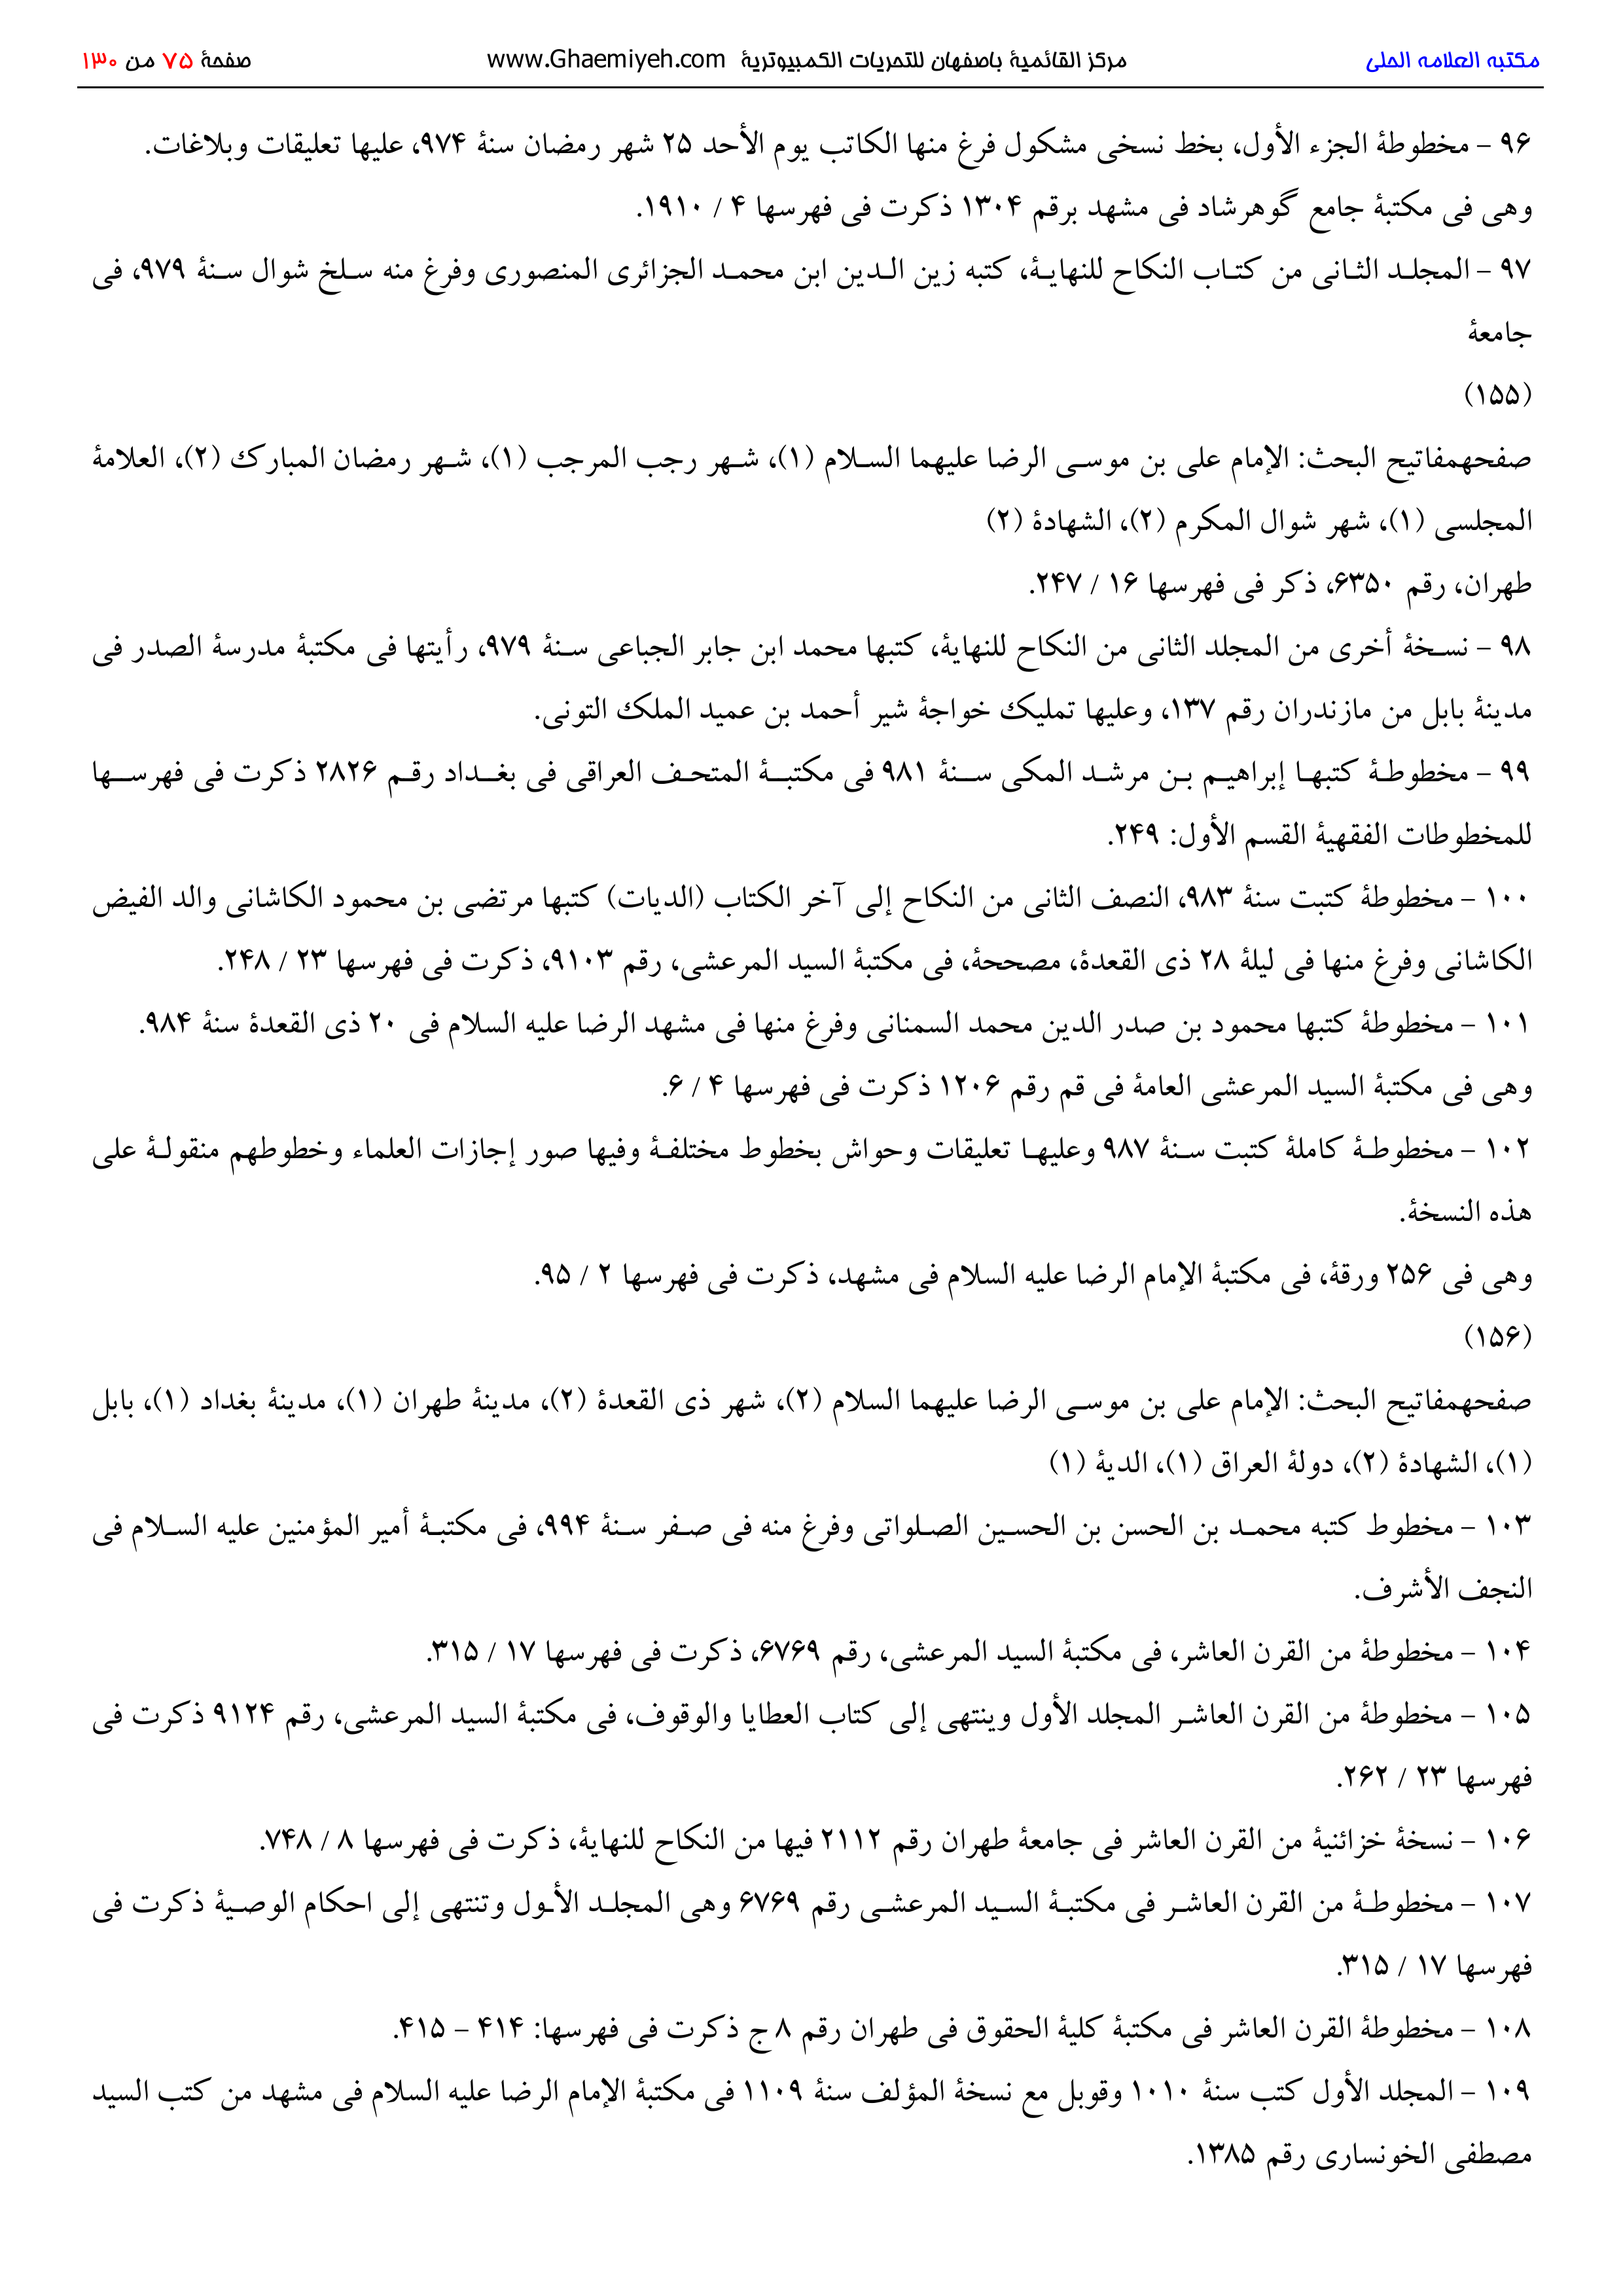 مكتبه العلامه الحلی مركز القائمیۀ باصفهان للتحریات الكمبیوتریۀ www.Ghaemiyeh.com صفحۀ ۷۵ من ۱۳۰
۹۶ - مخطوطۀ الجزء الأول، بخط نسخی مشكول فرغ منها الكاتب یوم الأحد ۲۵ شهر رمضان سنۀ ۹۷۴، علیها تعلیقات وبلاغات.
وهی فی مكتبۀ جامع گوهرشاد فی مشهد برقم ۱۳۰۴ ذكرت فی فهرسها ۴ / ۱۹۱۰.
۹۷ - المجلد الثانی من كتاب النكاح للنهایۀ، كتبه زین الدین ابن محمد الجزائری المنصوری وفرغ منه سلخ شوال سنۀ ۹۷۹، فی
جامعۀ
(۱۵۵)
صفحهمفاتیح البحث: الإمام علی بن موسی الرضا علیهما السلام (۱)، شهر رجب المرجب (۱)، شهر رمضان المبارك (۲)، العلامۀ
المجلسی (۱)، شهر شوال المكرم (۲)، الشهادۀ (۲)
طهران، رقم ۶۳۵۰، ذكر فی فهرسها ۱۶ / ۲۴۷.
۹۸ - نسخۀ أخری من المجلد الثانی من النكاح للنهایۀ، كتبها محمد ابن جابر الجباعی سنۀ ۹۷۹، رأیتها فی مكتبۀ مدرسۀ الصدر فی
مدینۀ بابل من مازندران رقم ۱۳۷، وعلیها تملیك خواجۀ شیر أحمد بن عمید الملك التونی.
۹۹ - مخطوطۀ كتبها إبراهیم بن مرشد المكی سنۀ ۹۸۱ فی مكتبۀ المتحف العراقی فی بغداد رقم ۲۸۲۶ ذكرت فی فهرسها
للمخطوطات الفقهیۀ القسم الأول: ۲۴۹.
۱۰۰ - مخطوطۀ كتبت سنۀ ۹۸۳، النصف الثانی من النكاح إلی آخر الكتاب (الدیات) كتبها مرتضی بن محمود الكاشانی والد الفیض
الكاشانی وفرغ منها فی لیلۀ ۲۸ ذی القعدۀ، مصححۀ، فی مكتبۀ السید المرعشی، رقم ۹۱۰۳، ذكرت فی فهرسها ۲۳ / ۲۴۸.
۱۰۱ - مخطوطۀ كتبها محمود بن صدر الدین محمد السمنانی وفرغ منها فی مشهد الرضا علیه السلام فی ۲۰ ذی القعدۀ سنۀ ۹۸۴.
وهی فی مكتبۀ السید المرعشی العامۀ فی قم رقم ۱۲۰۶ ذكرت فی فهرسها ۴ / ۶.
۱۰۲ - مخطوطۀ كاملۀ كتبت سنۀ ۹۸۷ وعلیها تعلیقات وحواش بخطوط مختلفۀ وفیها صور إجازات العلماء وخطوطهم منقولۀ علی
هذه النسخۀ.
وهی فی ۲۵۶ ورقۀ، فی مكتبۀ الإمام الرضا علیه السلام فی مشهد، ذكرت فی فهرسها ۲ / ۹۵.
(۱۵۶)
صفحهمفاتیح البحث: الإمام علی بن موسی الرضا علیهما السلام (۲)، شهر ذی القعدۀ (۲)، مدینۀ طهران (۱)، مدینۀ بغداد (۱)، بابل
(۱)، الشهادۀ (۲)، دولۀ العراق (۱)، الدیۀ (۱)
۱۰۳ - مخطوط كتبه محمد بن الحسن بن الحسین الصلواتی وفرغ منه فی صفر سنۀ ۹۹۴، فی مكتبۀ أمیر المؤمنین علیه السلام فی
النجف الأشرف.
۱۰۴ - مخطوطۀ من القرن العاشر، فی مكتبۀ السید المرعشی، رقم ۶۷۶۹، ذكرت فی فهرسها ۱۷ / ۳۱۵.
۱۰۵ - مخطوطۀ من القرن العاشر المجلد الأول وینتهی إلی كتاب العطایا والوقوف، فی مكتبۀ السید المرعشی، رقم ۹۱۲۴ ذكرت فی
فهرسها ۲۳ / ۲۶۲.
۱۰۶ - نسخۀ خزائنیۀ من القرن العاشر فی جامعۀ طهران رقم ۲۱۱۲ فیها من النكاح للنهایۀ، ذكرت فی فهرسها ۸ / ۷۴۸.
۱۰۷ - مخطوطۀ من القرن العاشر فی مكتبۀ السید المرعشی رقم ۶۷۶۹ وهی المجلد الأول وتنتهی إلی احكام الوصیۀ ذكرت فی
فهرسها ۱۷ / ۳۱۵.
۱۰۸ - مخطوطۀ القرن العاشر فی مكتبۀ كلیۀ الحقوق فی طهران رقم ۸ ج ذكرت فی فهرسها: ۴۱۴ - ۴۱۵.
۱۰۹ - المجلد الأول كتب سنۀ ۱۰۱۰ وقوبل مع نسخۀ المؤلف سنۀ ۱۱۰۹ فی مكتبۀ الإمام الرضا علیه السلام فی مشهد من كتب السید
مصطفی الخونساری رقم ۱۳۸۵.